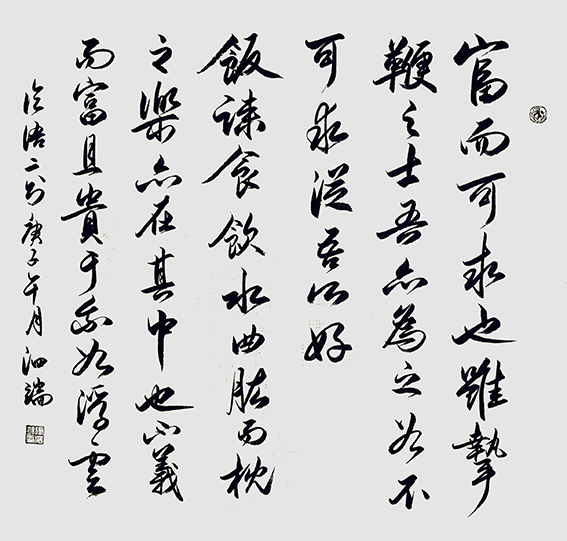 富而可求也雖摯
鞭之士吾亦為之如不
可求從吾所好
飯疎食飲水曲肱而枕
之樂亦在其中也不義
而富且貴于我如浮雲
論語二則庚子午月